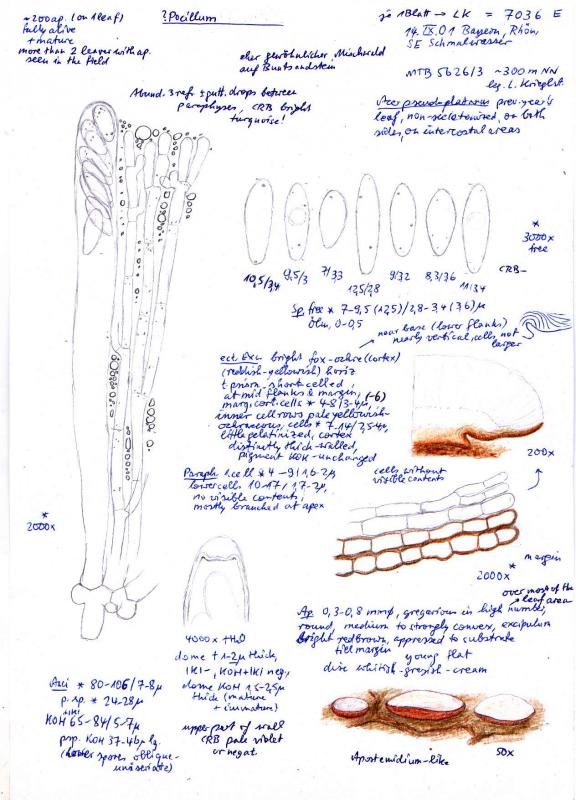 ~200 ap. (on 1 leaf)
fully alive
+ mature
more than 2 leaves with ap.
seen in the field
?Pocillum
eher gewöhnlicher Mischwald
auf Buntsandstein
je 1 Blatt → LK = 7036 E
14. IX. 01 Bayern, Rhön,
SE Schmalwasser
MTB 5626/3 ~300 m NN
leg. L. Krieglst.
Acer pseudoplatanus prev. year's
leaf, non-sclerotinized, on both
sides, on intercostal areas
Abund. 3 refr. ± gutt. drops between
paraphyses, CRB bright
turquoise!
*
3000x
free
10,5/3,4
9,5/3
7/3,3
12,5/2,8
9/3,2
8,3/3,6
11/3,4
CRB–
Sp. free * 7-9,5 (12,5)/2,8-3,4 (3,6) µ
Öltr. 0-0,5
near base (lower flanks)
nearly vertical, cells not
larger
ect. Exc. bright fox-ochre (cortex)
(reddish-yellowish) horiz
t. prism. short-celled,
at mid flanks & margin,
marg. cort. cells * 4-8/3-4µ (-6)
inner cell rows pale yellowish-
ochraceous, cells * 7-14/2,5-4µ,
little gelatinized, cortex
distinctly thick-walled,
pigment KOH-unchanged
200x
Paraph. t. cell * 4-9/1,6-2µ
lower cells 10-17/1,7-2µ,
no visible contents,
mostly branched at apex
cells without
visible contents
*
2000x
2000x *
margin
4000x ± H₂O
dome ± 1-2µ thick,
IKI-, KOH+IKI neg,
dome KOH 1,5-2,5µ
thick (mature
+ immature)
upper part of wall
CRB pale violet
or negat.
Ap. 0,3-0,8 mm ø, gregarious in high number,
over most of the
leaf area
round, medium to strongly convex, excipulum
bright redbrown, appressed to substrate
till margin
young flat
disc whitish-greyish-cream
Asci * 80-106/7-8µ
p. sp. * 24-28µ
KOH 65-84/5-7µ
psp. KOH 37-46µ lg.
(lower spores oblique-
uniseriate)
Apostemidium-like
50x